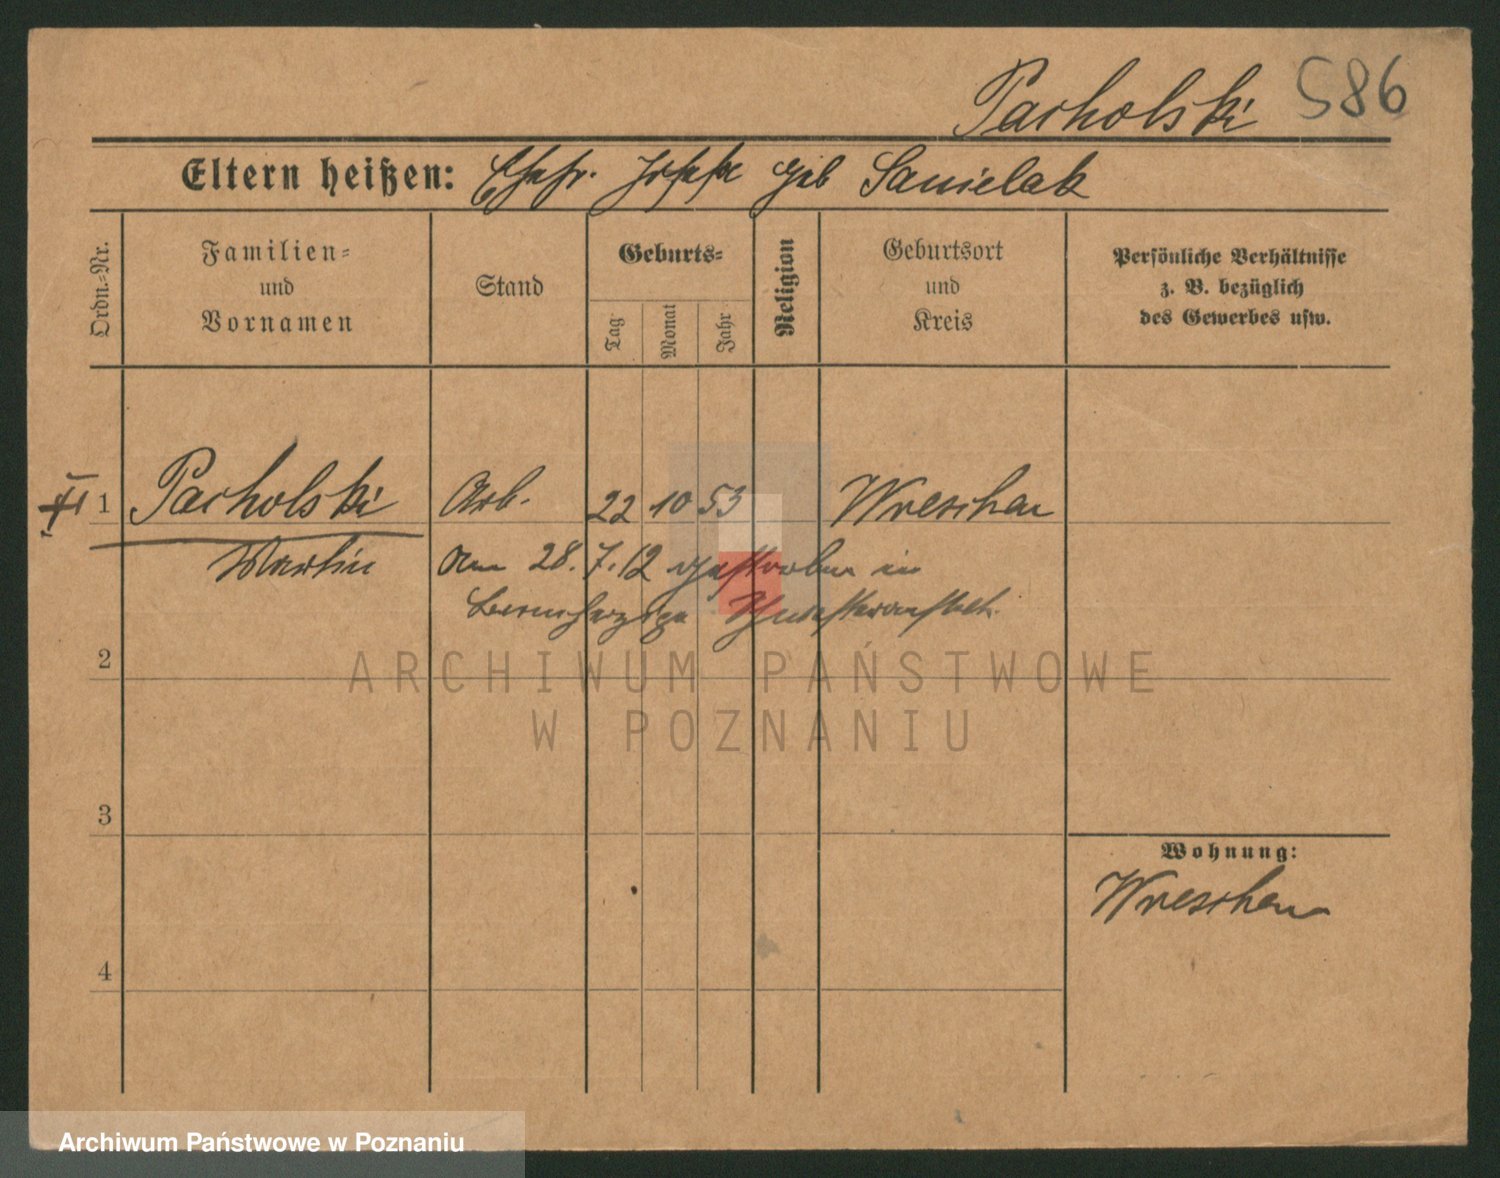 Pacholski 586
Eltern heißen: Ehefr. Josefa geb Sanielak
Ordn.-Nr.
Familien-
und
Vornamen
Stand
Geburts-
Tag
Monat
Jahr
Religion
Geburtsort
und
Kreis
Persönliche Verhältnisse
z. B. bezüglich
des Gewerbes usw.
1 Pacholski Arb. 22 10 53 Wreschen
Martin am 28.7.12 gestorben in
Barmherzige Schwesteranstalt.
2
ARCHIWUM PAŃSTWOWE
W POZNANIU
3
Wohnung:
Wreschen
4
Archiwum Państwowe w Poznaniu